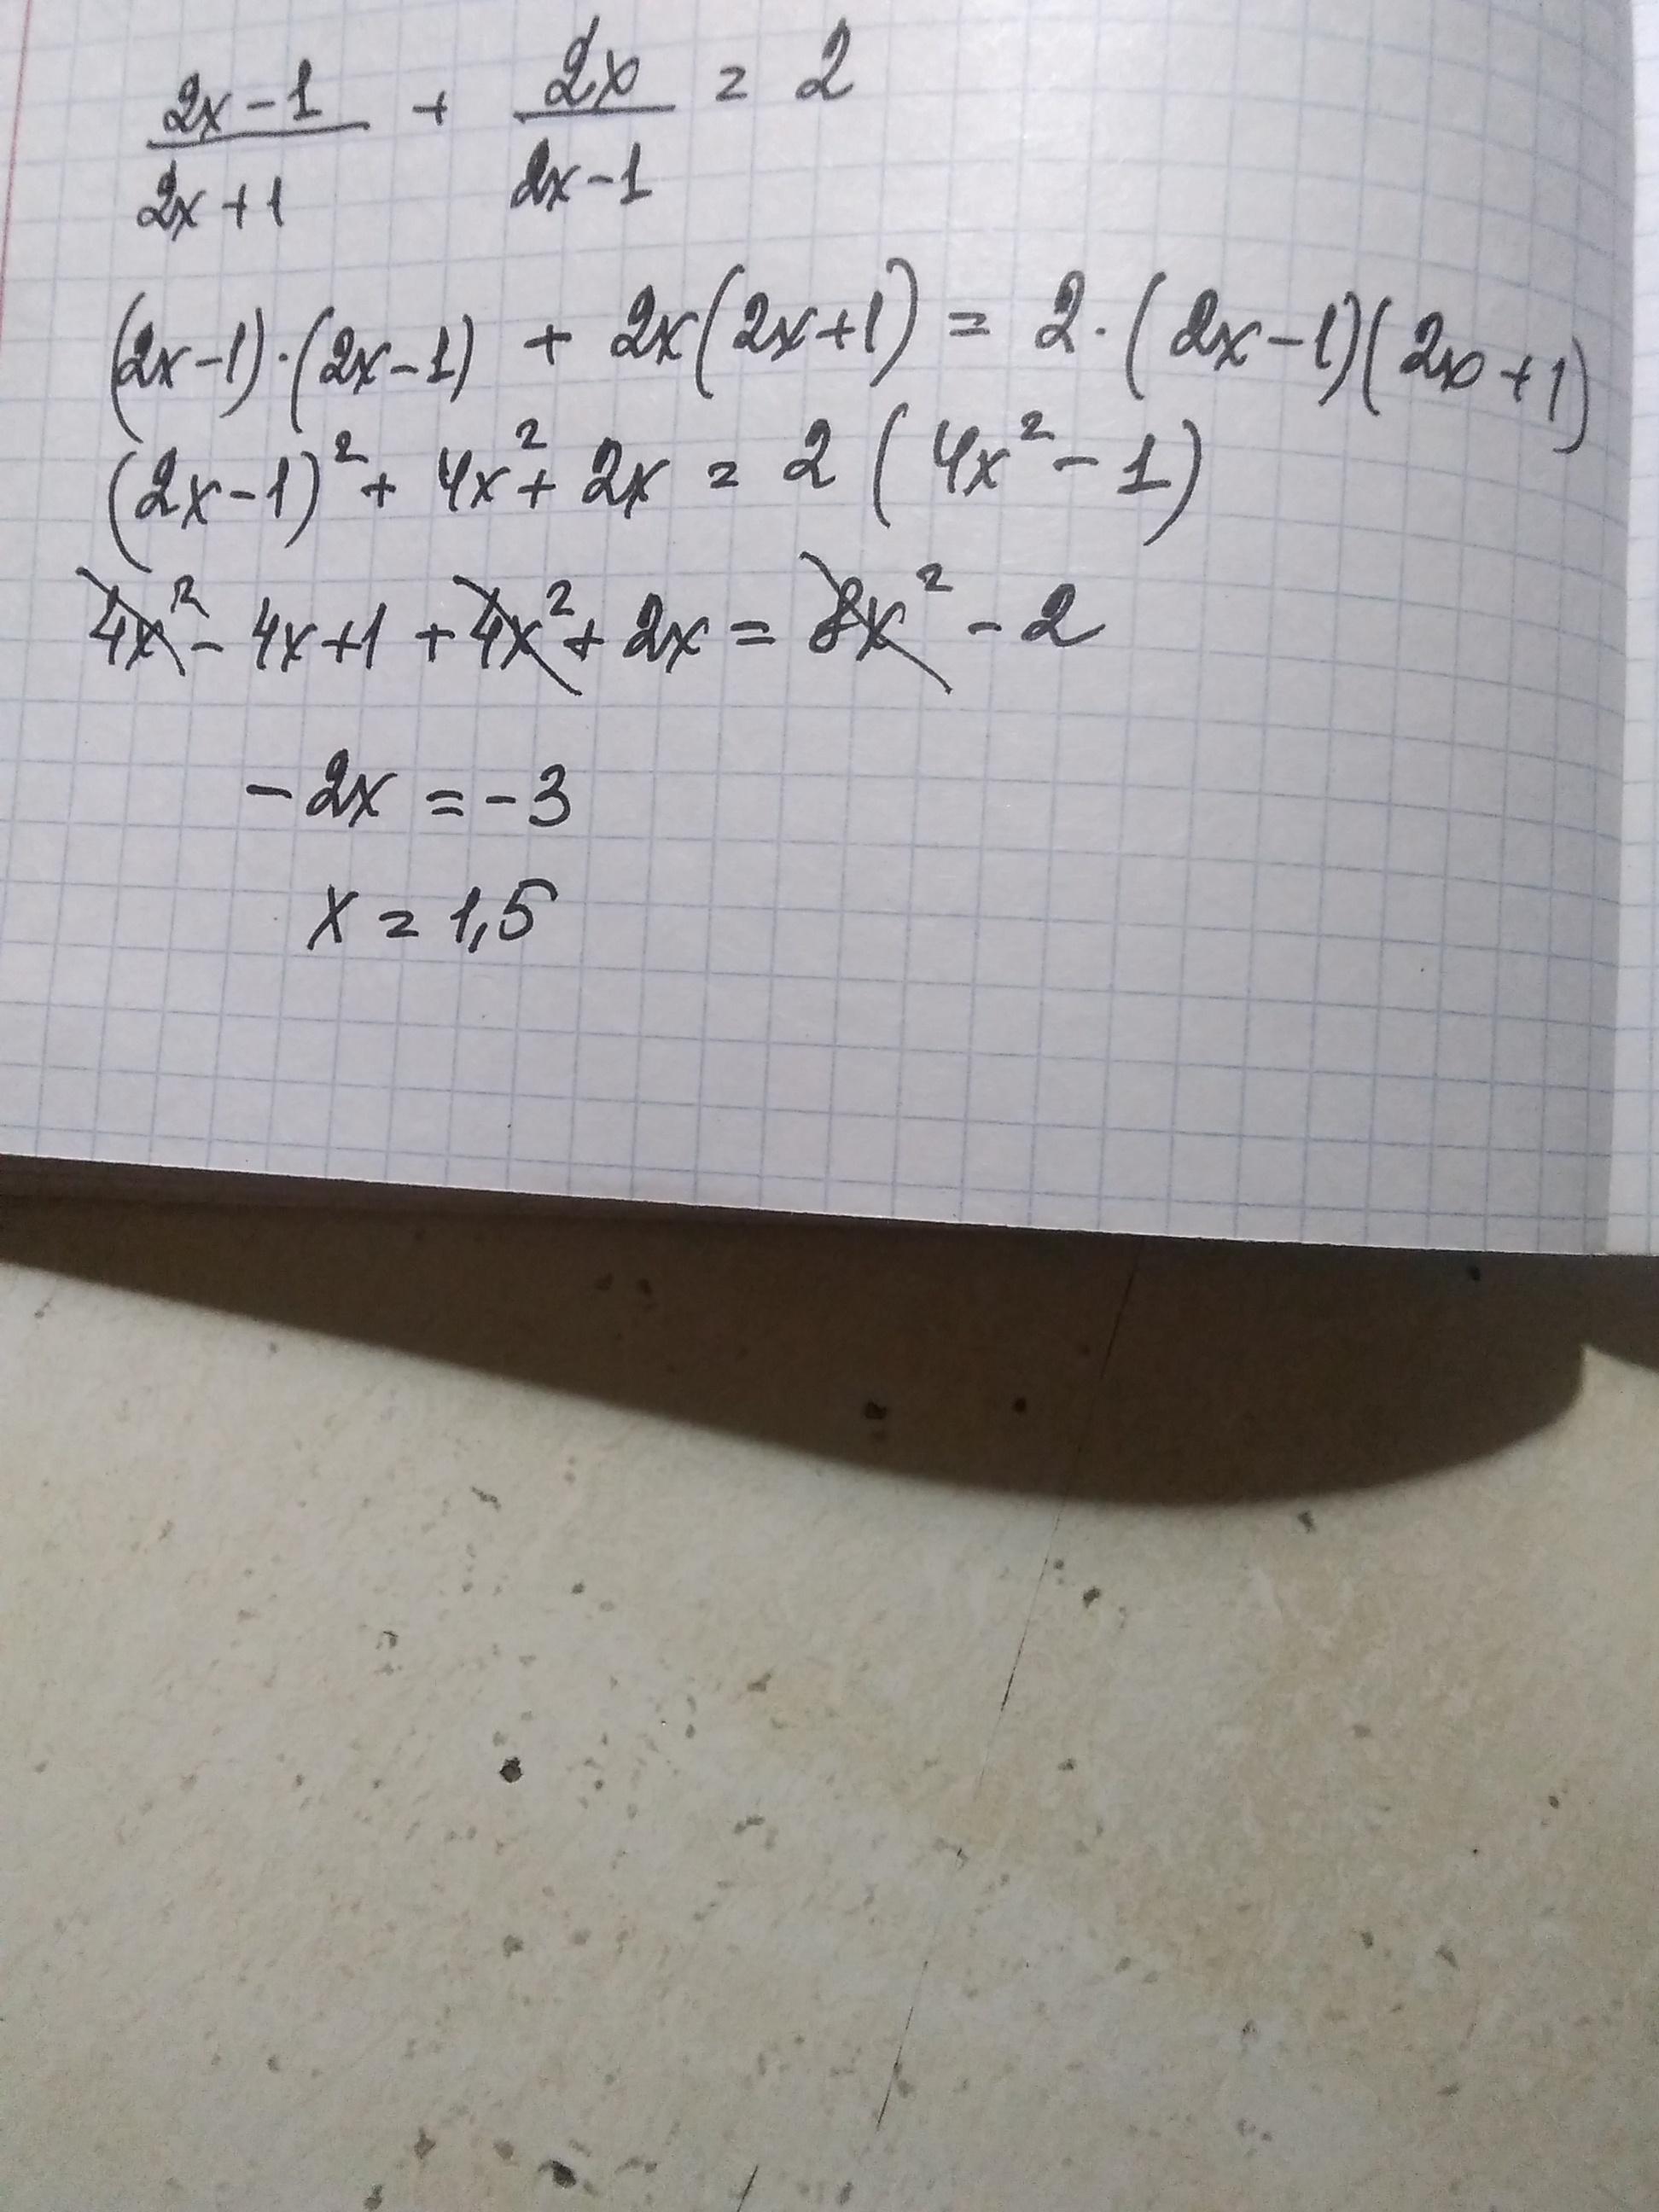 (2x-1)/(2x+1) + 2x/(2x-1) = 2
(2x-1)·(2x-1) + 2x(2x+1) = 2·(2x-1)(2x+1)
(2x-1)² + 4x² + 2x = 2(4x²-1)
4x² - 4x+1 + 4x² + 2x = 8x² - 2
-2x = -3
x = 1,5